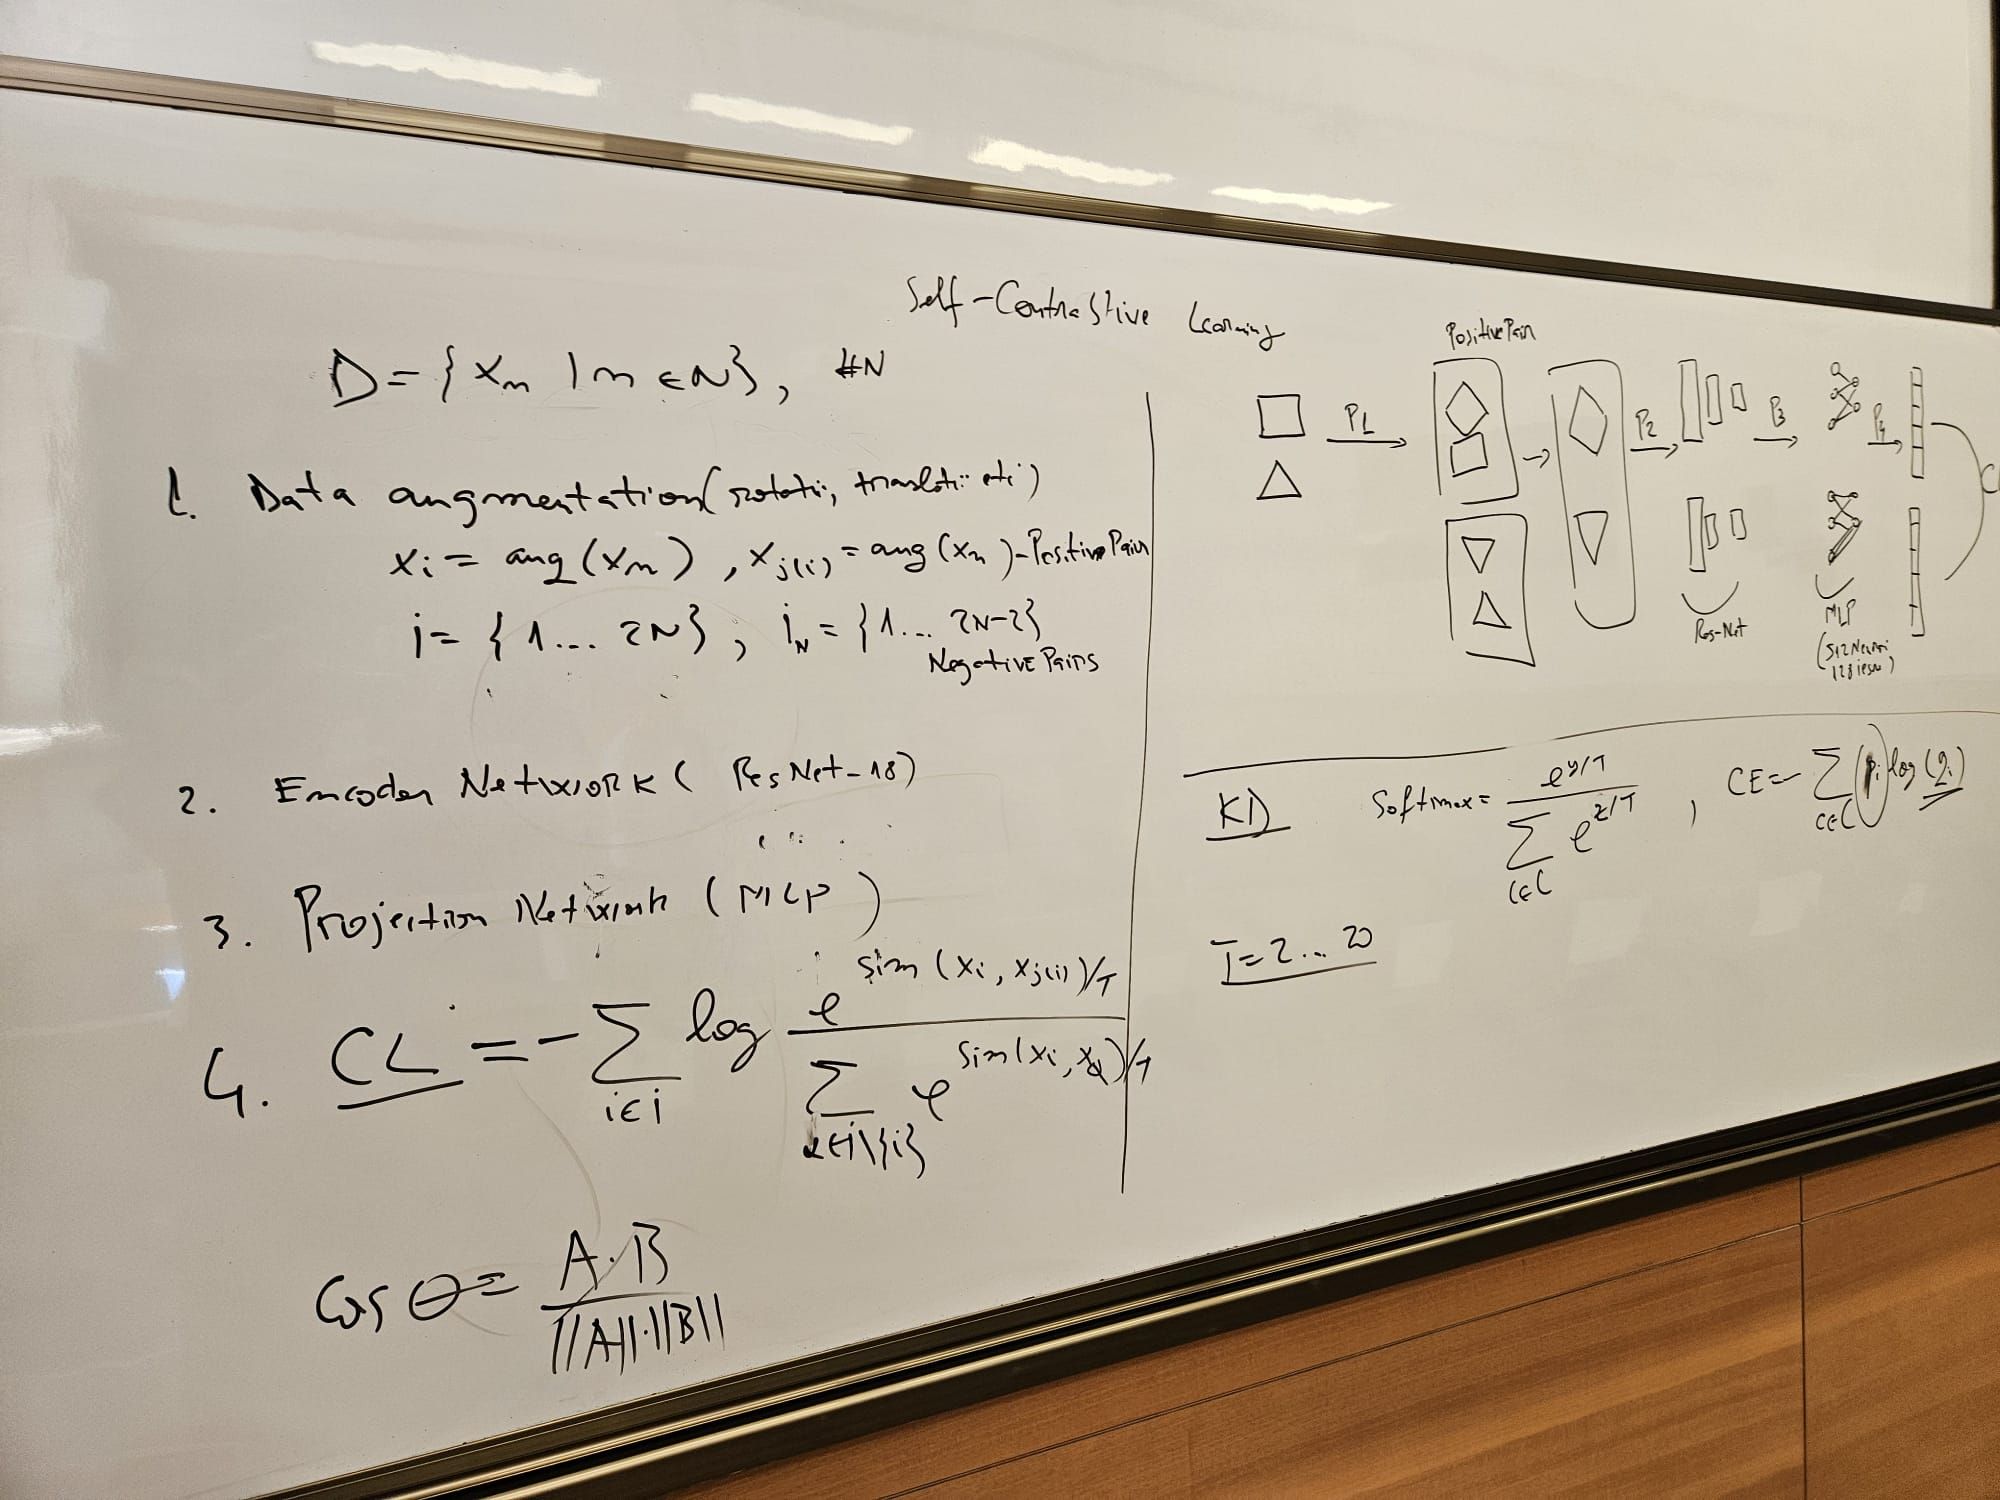 Self-Contrastive Learning
D = { x_n | n ∈ N }, #N
1. Data augmentation (rotatii, translatii etc)
x_i = aug(x_n), x_j(i) = aug(x_n) - Positive Pairs
i = { 1 ... 2N }, i_N = { 1 ... 2N-2 }
Negative Pairs
2. Encoder Network ( ResNet-18)
3. Projection Network (MLP)
4. CL = - Σ_{i∈i} log e^{sim(x_i, x_j(i))/T} / Σ_{∈i\{i}} e^{sim(x_i, x)/T}
cos θ = A·B / ||A||·||B||
Positive Pair
P1
P2
P3
P4
C
Res-Net
MLP
(512 Neuroni
128 iesiri)
KD
Softmax = e^{y/T} / Σ_{c∈C} e^{z/T}, CE = - Σ_{c∈C} (p_i) log (q_i)
T = 2 ... 20